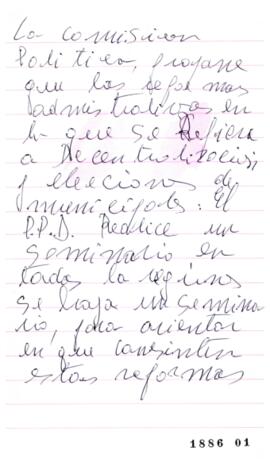 La comision
Politica, propone
que las reformas
administrativas en
lo que se Refiera
a Decentralizacion,
y elecciones de
municipales: El
P.P.D. Realice un
Seminario en
todas la regiones
se haga un semina
rio, para orientar
en que consisten
estas reformas
1886 01